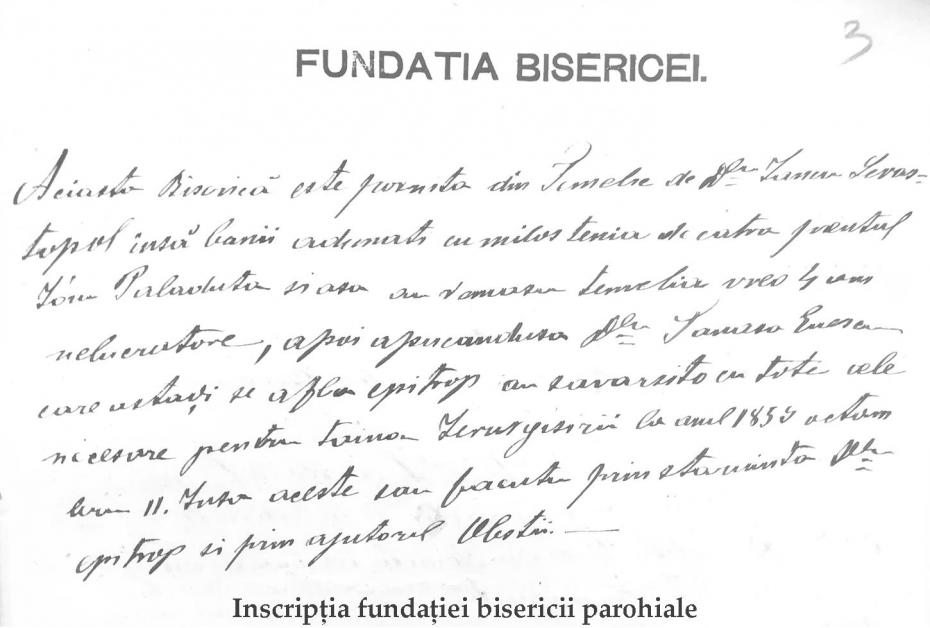 3
FUNDATIA BISERICEI.
Aciasta Biserică este pornita din Temelie de Dlu Iancu Sevas-
topol insă banii adunati cu milostenia de catra preutul
Ión Paladuta si asa au remasu temelia vreo 4 ani
nelucratore, apoi apucanduse Dlu Tanasa Enescu
care astadi se afla epitrop au savarsito cu tote cele
necesare pentru taina Ierurgisirii la anul 1853 octom
brie 11. Insa aceste sau facutu prin staruinta Dlu
epitrop si prin ajutorul Obstii. —
Inscripția fundației bisericii parohiale